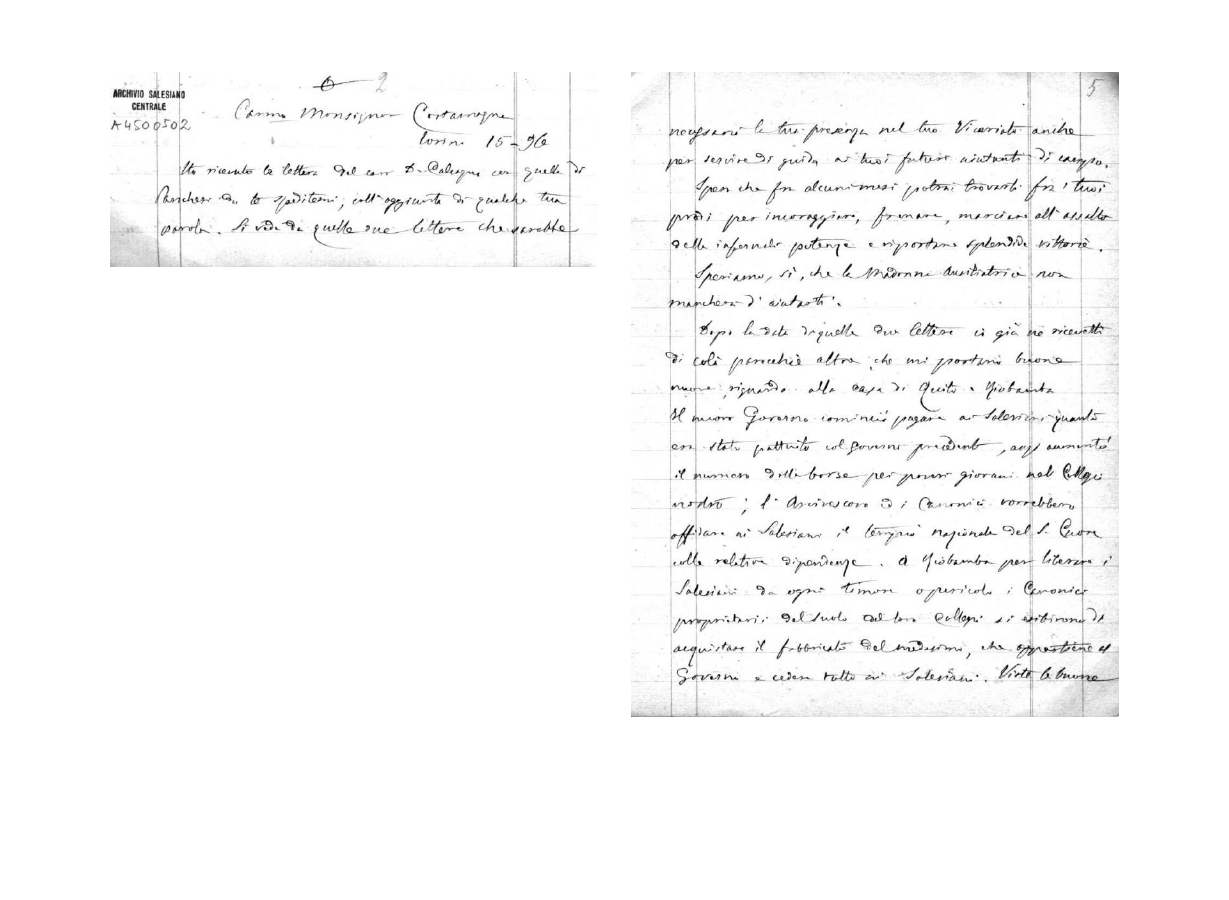 6 2
ARCHIVIO SALESIANO
CENTRALE
A4500502
Carmo Monsignor Costamagna
Torino 15 - 96
Ho ricevuto la lettera del caro D. Calcagno con quella di
che tu speditemi, coll'aggiunta di qualche tua
parola. Si vede da quelle due lettere che sarebbe
5
necessaria la tua presenza nel tuo Vicariato anche
per servire di guida ai tuoi futuri aiutanti di campo.
Spero che fra alcuni mesi potrai trovarti fra i tuoi
prodi per incoraggiare, frenare, marciare all'assalto
delle infernali potenze e riportare splendide vittorie.
Speriamo, sì, che la Madonna Ausiliatrice non
mancherà d'aiutarti.
Dopo la data di quelle due lettere io già ne ricevetti
di colà parecchie altre che mi portano buone
nuove riguardo alla casa di Quito e Riobamba
Il nuovo Governo cominciò pagare ai Salesiani quanto
era stato pattuito col governo precedente, anzi aumentò
il numero delle borse per poveri giovani nel Collegio
nostro; l'Arcivescovo ed i Canonici vorrebbero
affidare ai Salesiani il tempio nazionale del S. Cuore
colle relative dipendenze. A Riobamba per liberare i
Salesiani da ogni timore o pericolo i Canonici
proprietarii del suolo del loro Collegio si esibirono di
acquistare il fabbricato del medesimo, che appartiene al
Governo e cedere tutto ai Salesiani. Viste le buone